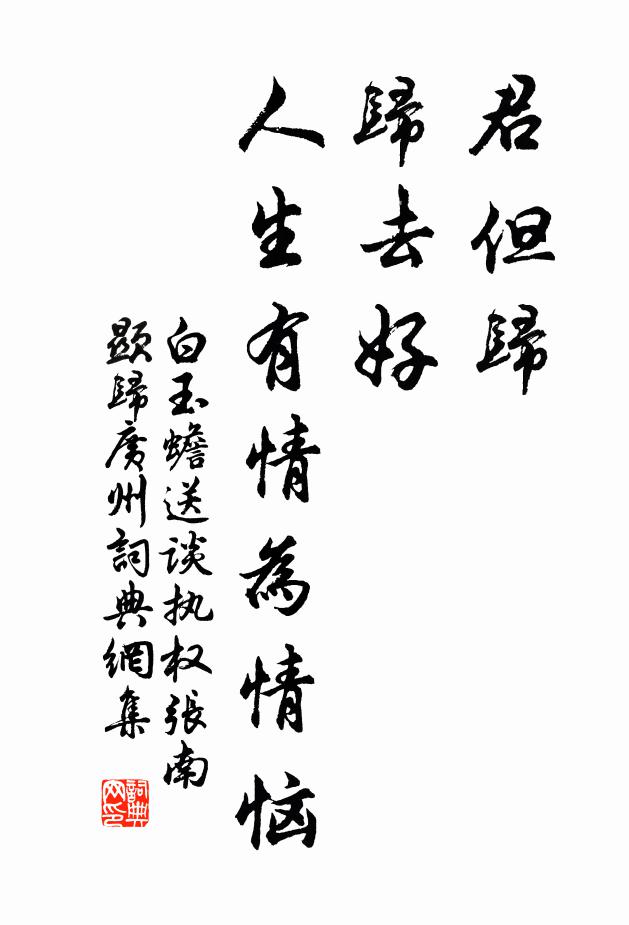 君但歸
歸去好
人生有情為情恼
白玉蟾送谈执权張南
顯歸廣州詞典網集
詞典网印